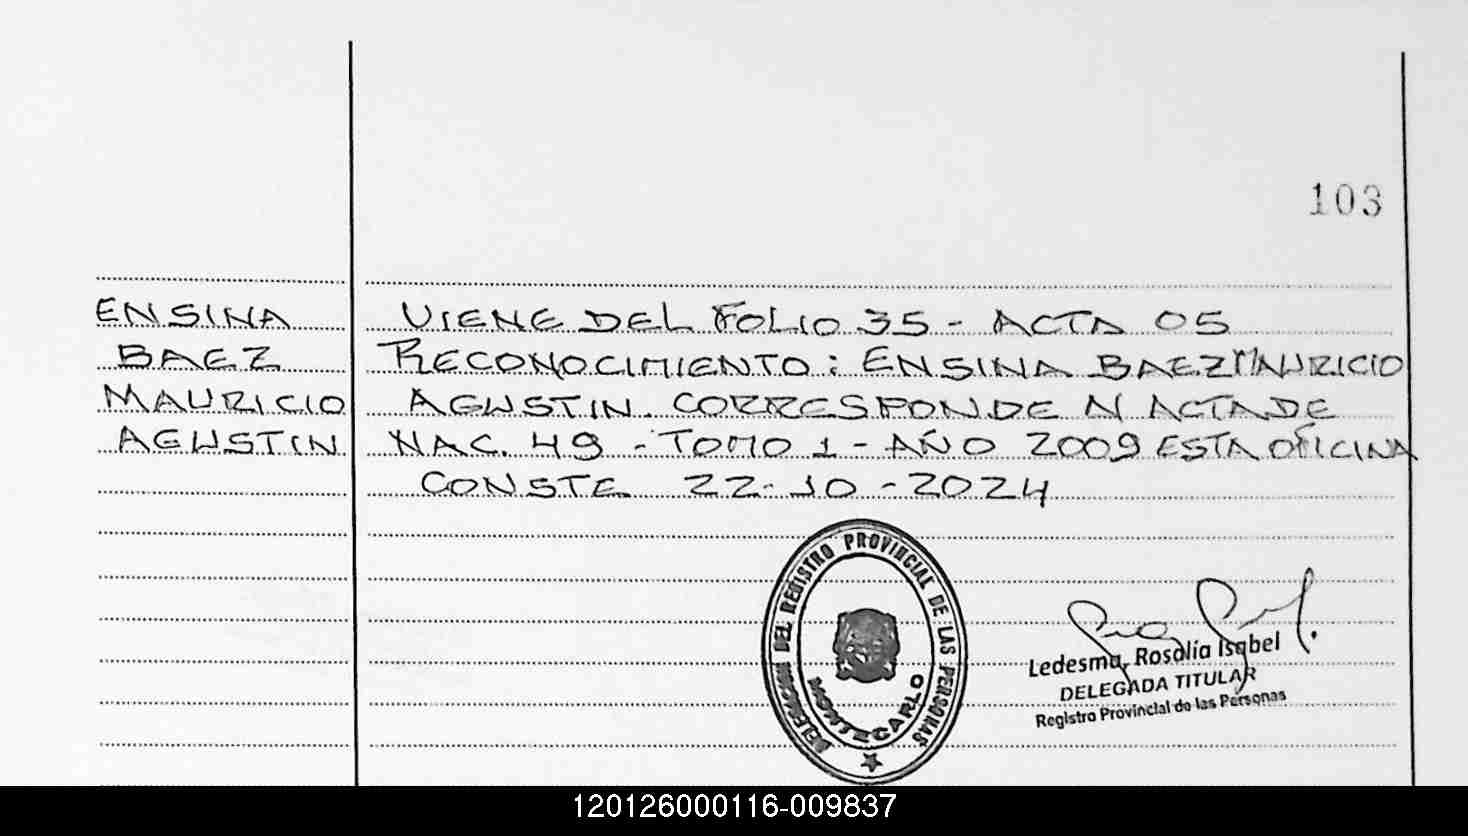 103
ENSINA
BAEZ
MAURICIO
AGUSTIN
VIENE DEL FOLIO 35 - ACTA 05
RECONOCIMIENTO: ENSINA BAEZ MAURICIO
AGUSTIN. CORRESPONDE N ACTA DE
NAC. 49 - TOMO 1 - AÑO 2009 ESTA OFICINA
CONSTE 22-10-2024
DELEGACION DEL REGISTRO PROVINCIAL DE LAS PERSONAS
MONTECARLO
Ledesma, Rosalía Isabel
DELEGADA TITULAR
Registro Provincial de las Personas
120126000116-009837